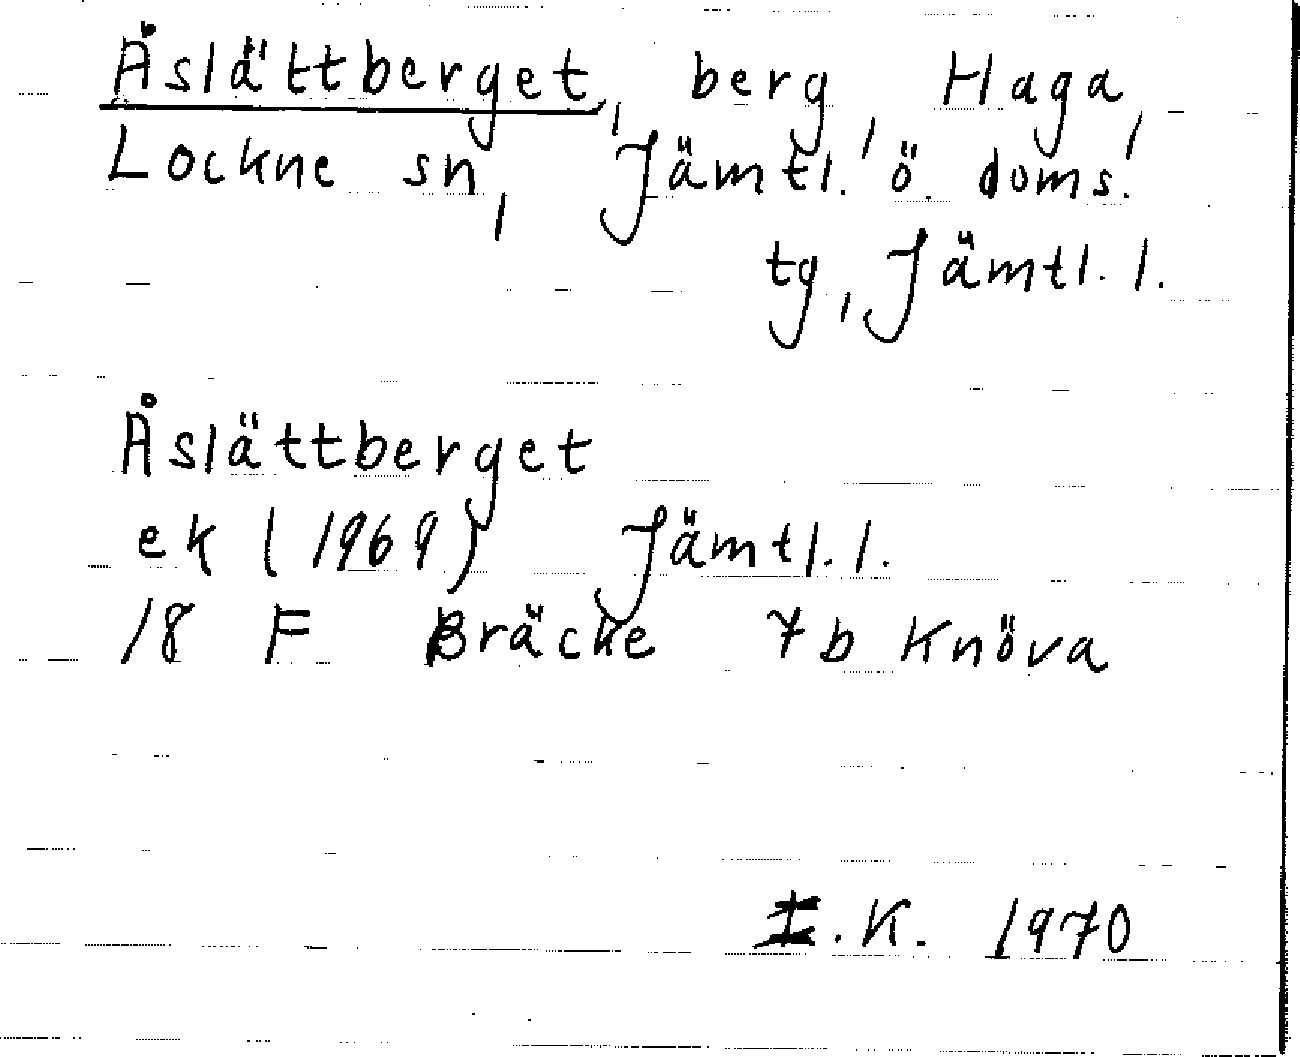 Åslättberget, berg, Haga,
Lockne sn, Jämtl. ö. doms.
tg, Jämtl. l.
Åslättberget
ek (1969) Jämtl. l.
18 F Bräcke 7b Knöva
I.K. 1970